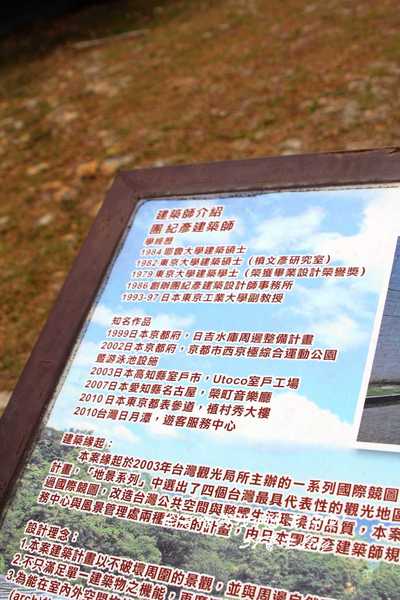 建築師介紹
團紀彥建築師
學經歷
1984 耶魯大學建築碩士
1982 東京大學建築碩士（槙文彥研究室）
1979 東京大學建築學士（榮獲畢業設計榮譽獎）
1986 創辦團紀彥建築設計師事務所
1993-97日本東京工業大學副教授
知名作品
1999日本京都府，日吉水庫周邊整備計畫
2002日本京都府，京都市西京極綜合運動公園
暨游泳池設施
2003日本高知縣室戶市，Utoco室戶工場
2007日本愛知縣名古屋，榮町音樂廳
2010 日本東京都表參道，植村秀大樓
2010台灣日月潭，遊客服務中心
建築緣起：
本案緣起於2003年台灣觀光局所主辦的一系列國際競圖
計畫，「地景系列」中選出了四個台灣最具代表性的觀光地區
過國際競圖，改造台灣公共空間與整體生活環境的品質，本案
務中心與風景管理處兩種 的計畫，由日本團紀彥建築師規
設計理念：
1.本案建築計畫以不破壞周圍的景觀，並與周邊自然
2.不只滿足單一建築物之機能，更
3.為能在室內外空間